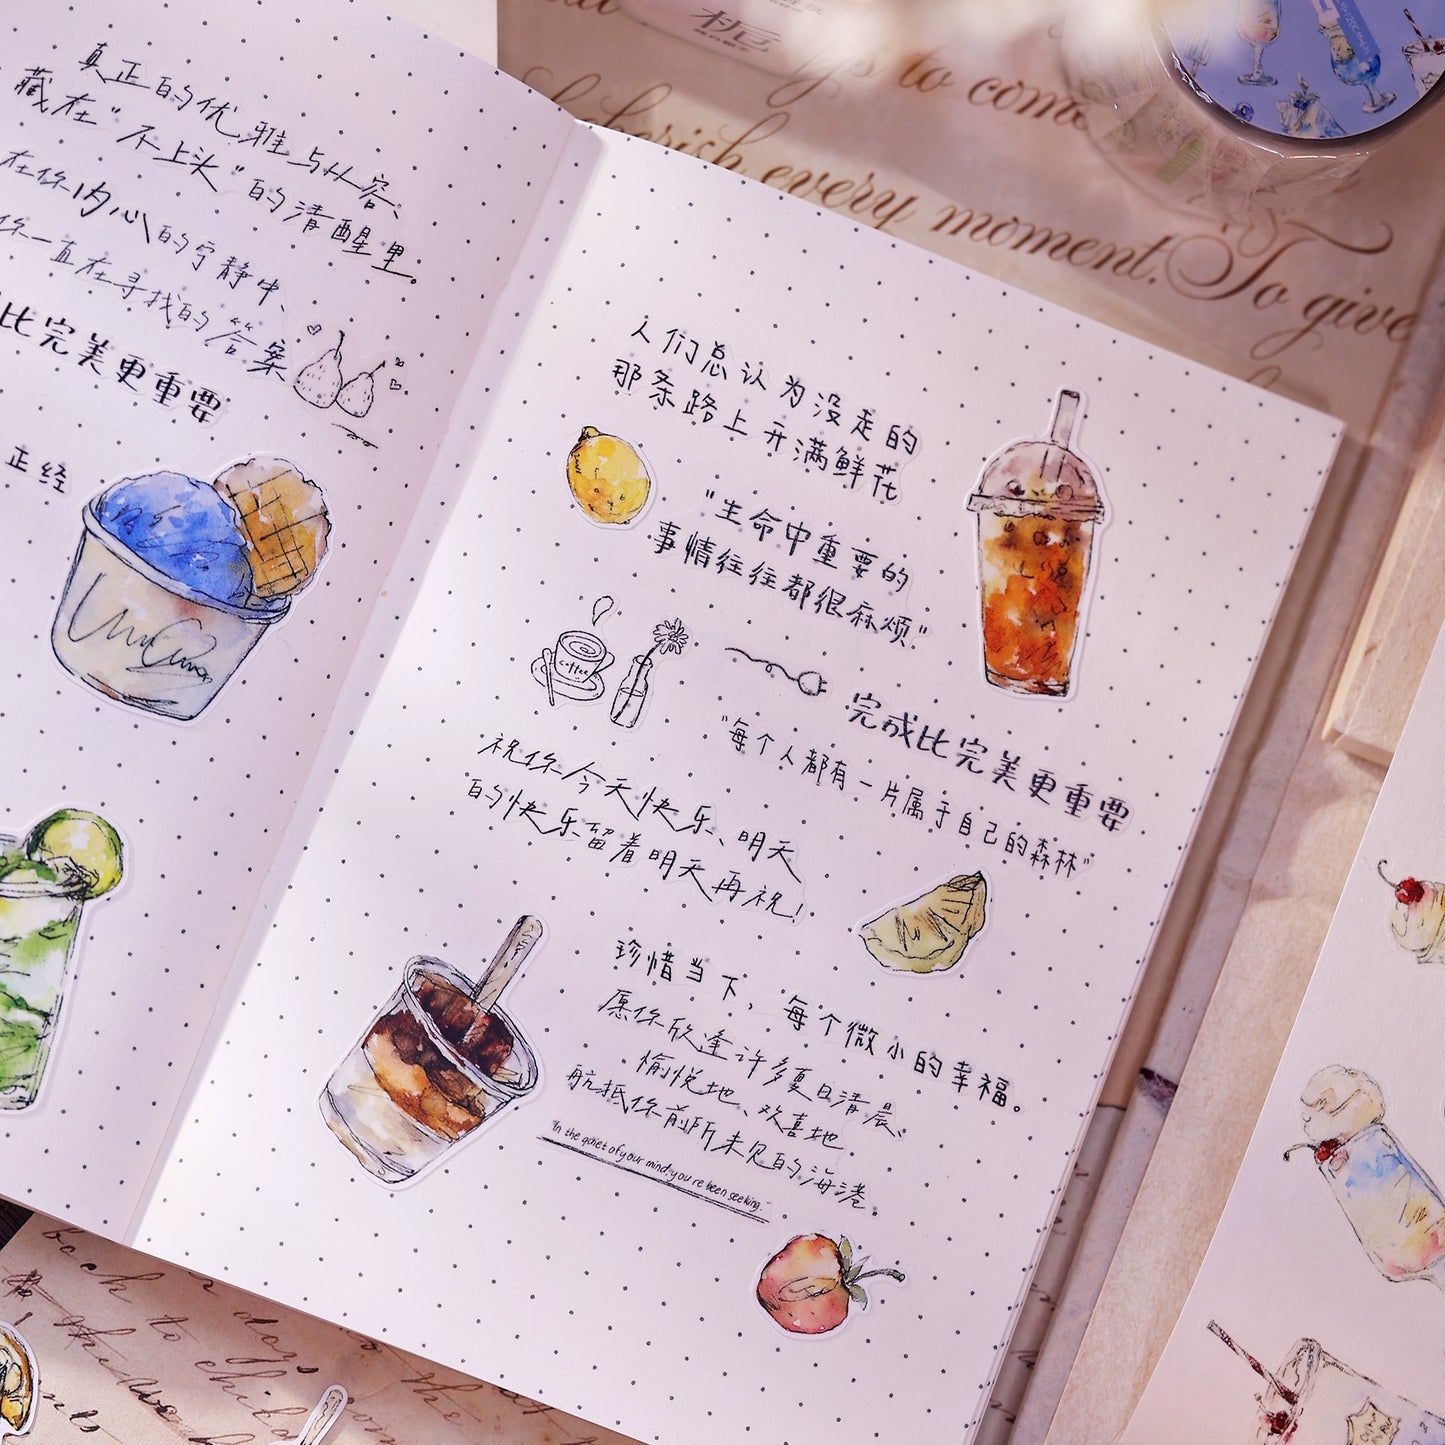 真正的优雅与从容、
藏在"不上头"的清醒里。
在你内心的宁静中、
你一直在寻找的答案
比完美更重要
正经
人们总认为没走的
那条路上开满鲜花
"生命中重要的
事情往往都很麻烦"
coffee
完成比完美更重要
"每个人都有一片属于自己的森林"
祝你今天快乐、明天
的快乐留着明天再祝!
珍惜当下,每个微小的幸福。
愿你欣逢许多夏日清晨、
愉悦地、欢喜地
航抵你前所未见的海港。
"In the quiet of your mind, you're been seeking."
to come
cherish every moment. To give